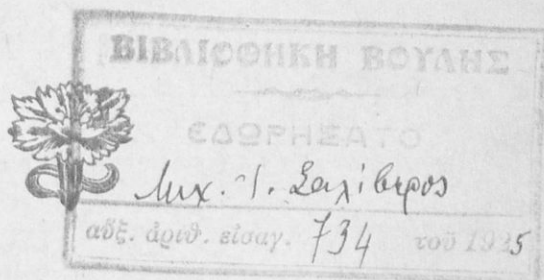 ΒΙΒΛΙΟΘΗΚΗ ΒΟΥΛΗΣ
ΕΔΩΡΗΣΑΤΟ
Μιχ. Ι. Σαλίβερος
αὔξ. ἀριθ. εἰσαγ. 734 τοῦ 1925